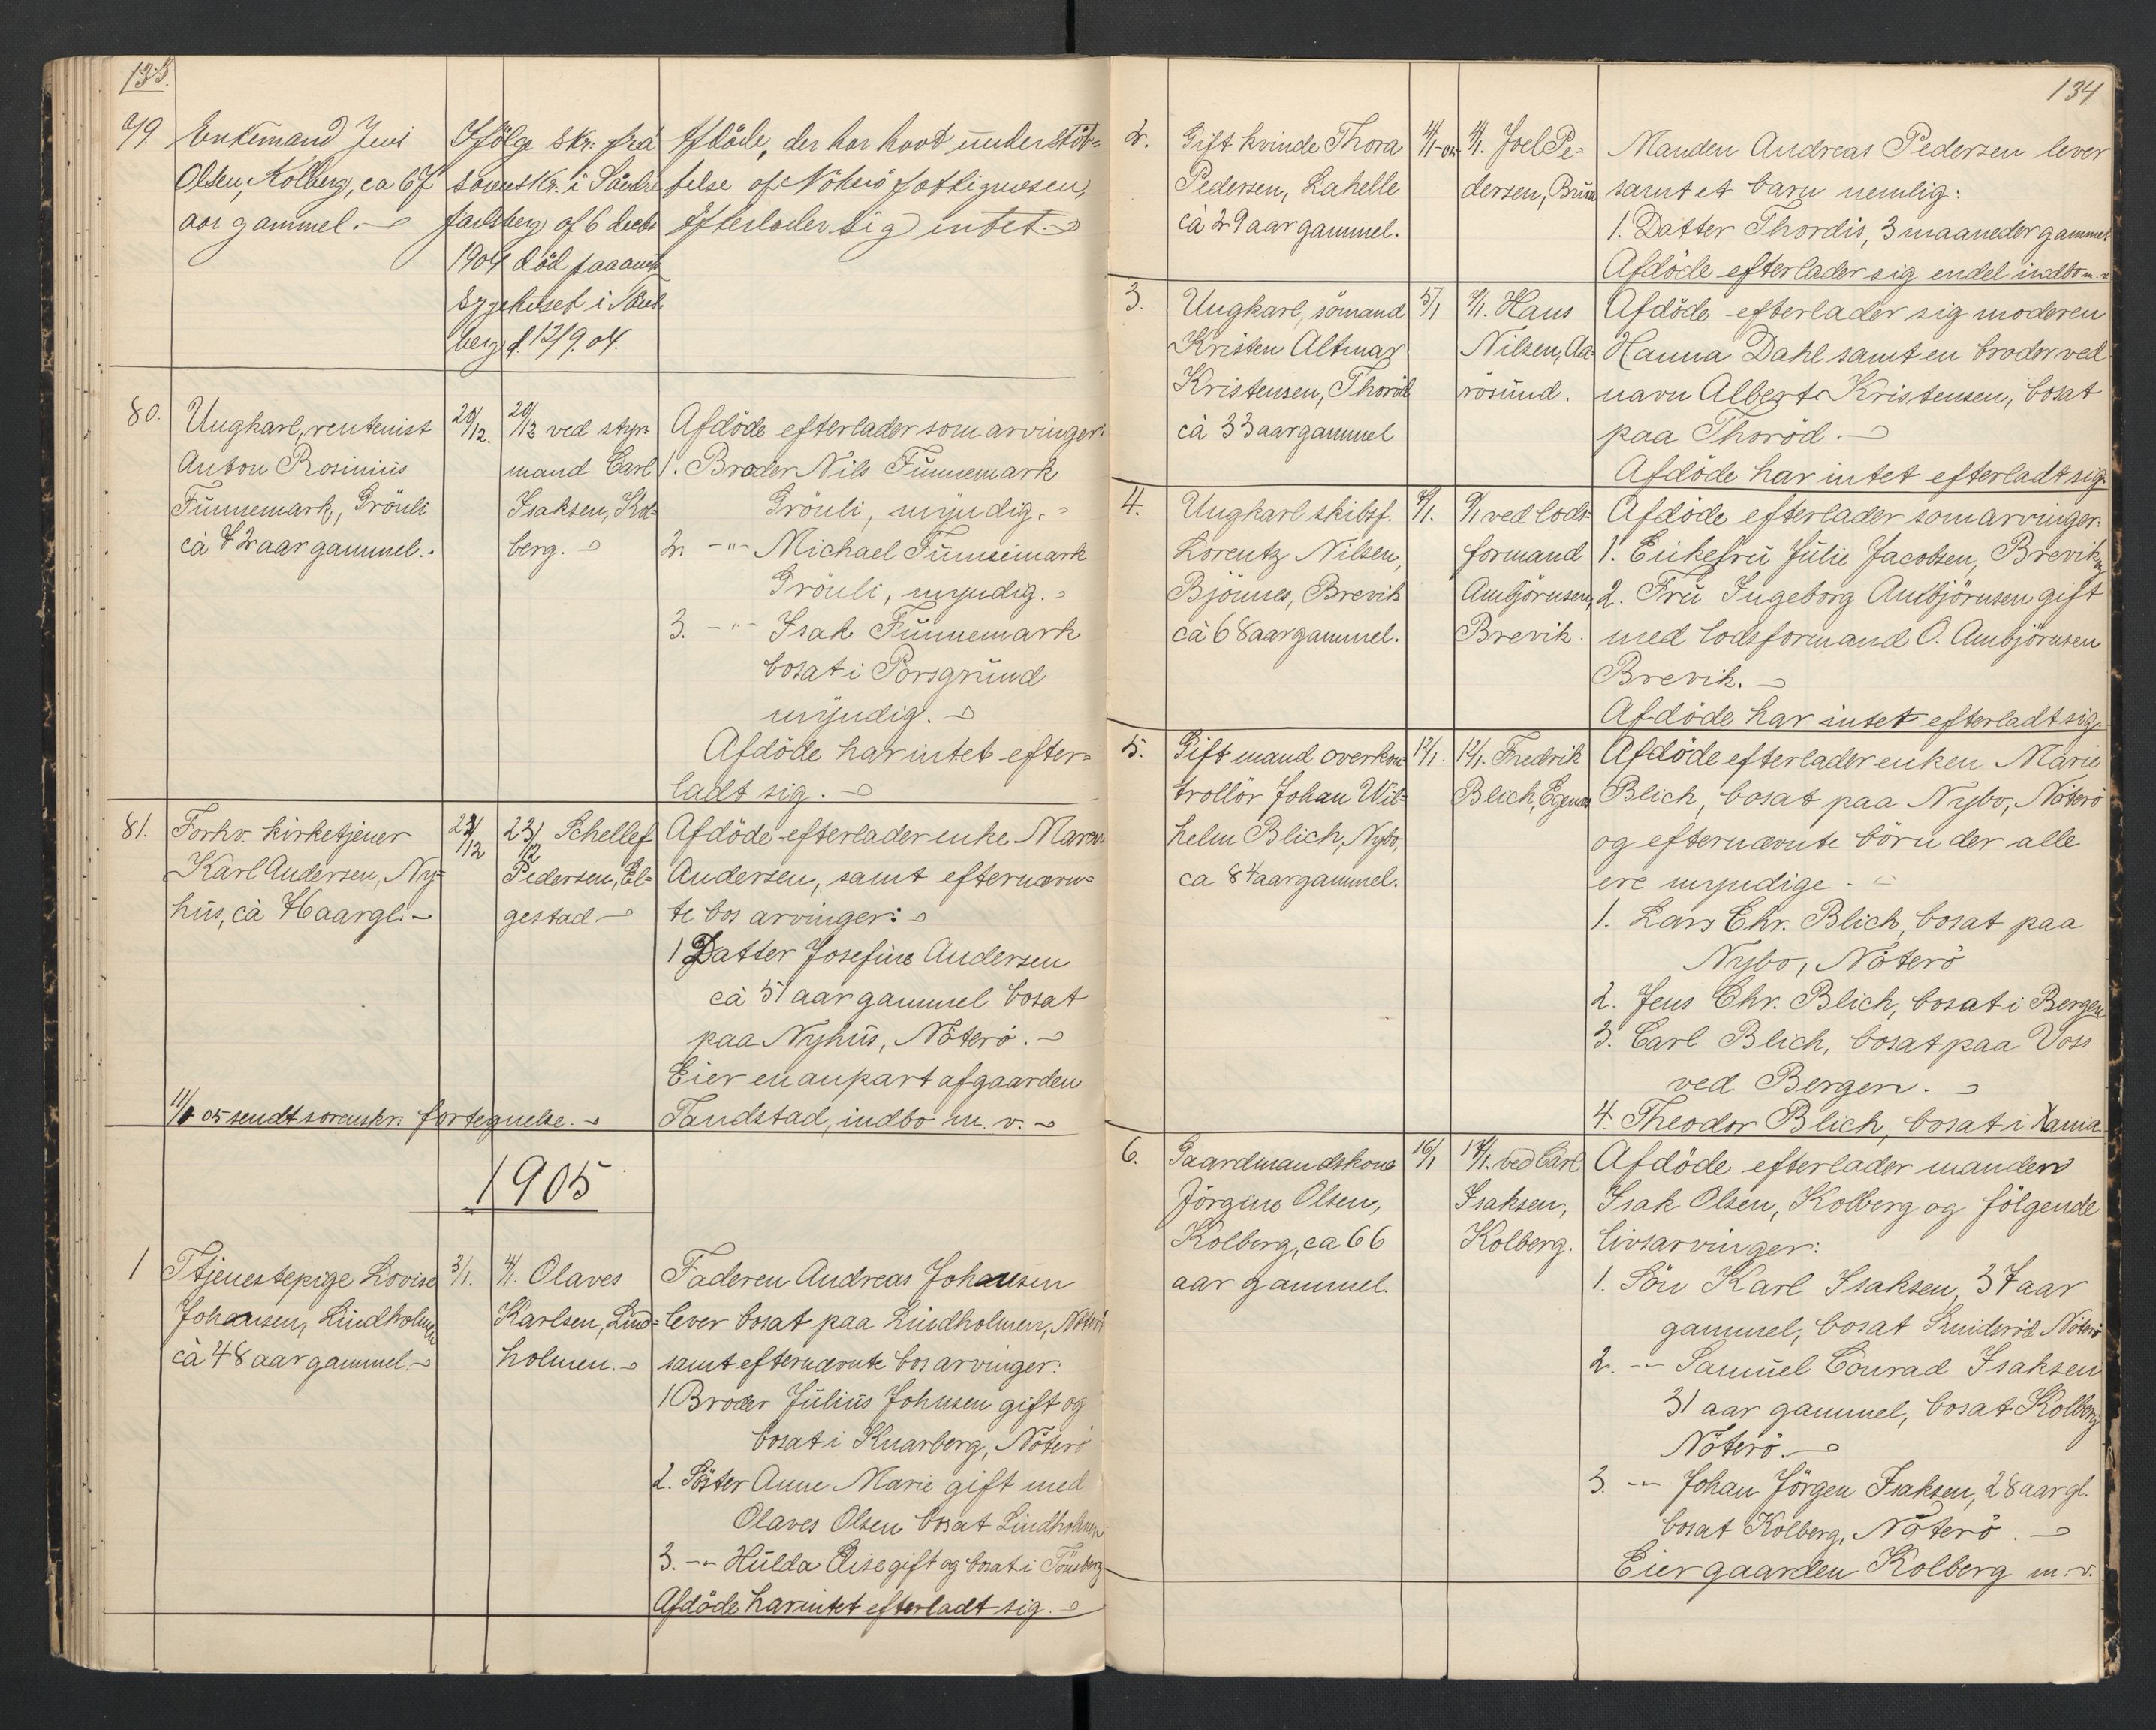 133.
79. Enkemand Jens
Olsen, Kolberg, ca 67
aar gammel.
Ifölge skr. fra
sorenskr. i Söndre
Jarlsberg af 6 decbr
1904 död paa amts
sygehuset i Töns
berg d. 12/9.04.
Afdöde, der har havt understöt-
telse af Nöterö fattigvæsen,
efterlader sig intet.
80. Ungkarl, rentenist
Anton Rosinius
Funnemark, Grönli
cà 72 aar gammel.
20/12.
20/12 ved styr-
mand Carl
Isaksen, Kol-
berg.
Afdöde efterlader som arvinger:
1. Broder Nils Funnemark
Grönli, myndig.
2. -"- Michael Funnemark
Grönli, myndig.
3. -"- Isak Funnemark
bosat i Porsgrund
myndig.
Afdöde har intet efter-
ladt sig.
81. Forhv. kirketjener
Karl Andersen, Ny-
hus, cà aargl.
23/12
23/12 Schellef
Pedersen, El-
gestad
Afdöde efterlader enke Maren
Andersen, samt efternævn-
te bos arvinger:
1 Datter Josefine Andersen
cà 51 aar gammel bosat
paa Nyhus, Nöterö.
Eier en anpart af gaarden
Tandstad, indbo m. v.
05 sendt sorenskr. fortegnelse.
1905
1 Tjenestepige Lovise
Johansen, Lindholmen
cà 48 aar gammel.
3/1.
4/1. Olaves
Karlsen, Lind-
holmen.
Faderen Andreas Johansen
lever bosat paa Lindholmen, Nöterö
samt efternævnte bos arvinger:
1 Broder Julius Johnsen gift og
bosat i Knarberg, Nöterö
2. Söster Anne Marie gift med
Olaves Olsen bosat Lindholmen
3. -"- Hulda Elise gift og bosat i Tönsberg
Afdöde har intet efterladt sig.
134.
2. Gift kvinde Thora
Pedersen, Lahelle
cà 29 aar gammel.
4/1-05
4/1. Joel Pe-
dersen, Bruna
Manden Andreas Pedersen lever
samt et barn nemlig:
1. Datter Thordis, 3 maaneder gammel
Afdöde efterlader sig endel indbo m. v.
3. Ungkarl, sömand
Kristen Altmar
Kristensen, Thoröd
cà 33 aar gammel
5/1
7/1. Hans
Nilsen, Aa-
rösund.
Afdöde efterlader sig moderen
Hanna Dahl samt en broder ved
navn Albert Kristensen, bosat
paa Thoröd.
Afdöde har intet efterladt sig.
4. Ungkarl skibsf.
Lorentz Nilsen,
Bjönnes, Brevik
cà 68 aar gammel.
9/1 ved lods-
formand
Ambjörnsen,
Brevik.
Afdöde efterlader som arvinger:
1. Enkefru Julie Jacobsen, Brevik og
2. Fru Ingeborg Ambjörnsen gift
med lodsformand O. Ambjörnsen
Brevik.
Afdöde har intet efterladt sig.
5. Gift mand overkon-
trollör Johan Wil-
helm Blich, Nybo,
ca 84 aar gammel.
12/1.
12/1. Fredrik
Blich, Egenæs
Afdöde efterlader enken Marie
Blich, bosat paa Nybo, Nöterö
og efternævnte börn der alle
ere myndige.
1. Lars Chr. Blich, bosat paa
Nybo, Nöterö
2. Jens Chr. Blich, bosat i Bergen
3. Carl Blich, bosat paa Voss
ved Bergen.
4. Theodor Blich, bosat i Xania
6. Gaardmandskone
Jörgine Olsen,
Kolberg, ca 66
aar gammel.
16/1
17/1. ved Carl
Isaksen,
Kolberg.
Afdöde efterlader manden
Isak Olsen, Kolberg og fölgende
livsarvinger:
1. Sön Karl Isaksen, 37 aar
gammel, bosat Smideröd Nöterö
2. -"- Samuel Conrad Isaksen
31 aar gammel, bosat Kolberg
Nöterö.
3. -"- Johan Jörgen Isaksen, 28 aar gl.
bosat Kolberg, Nöterö.
Eier gaarden Kolberg m. v.